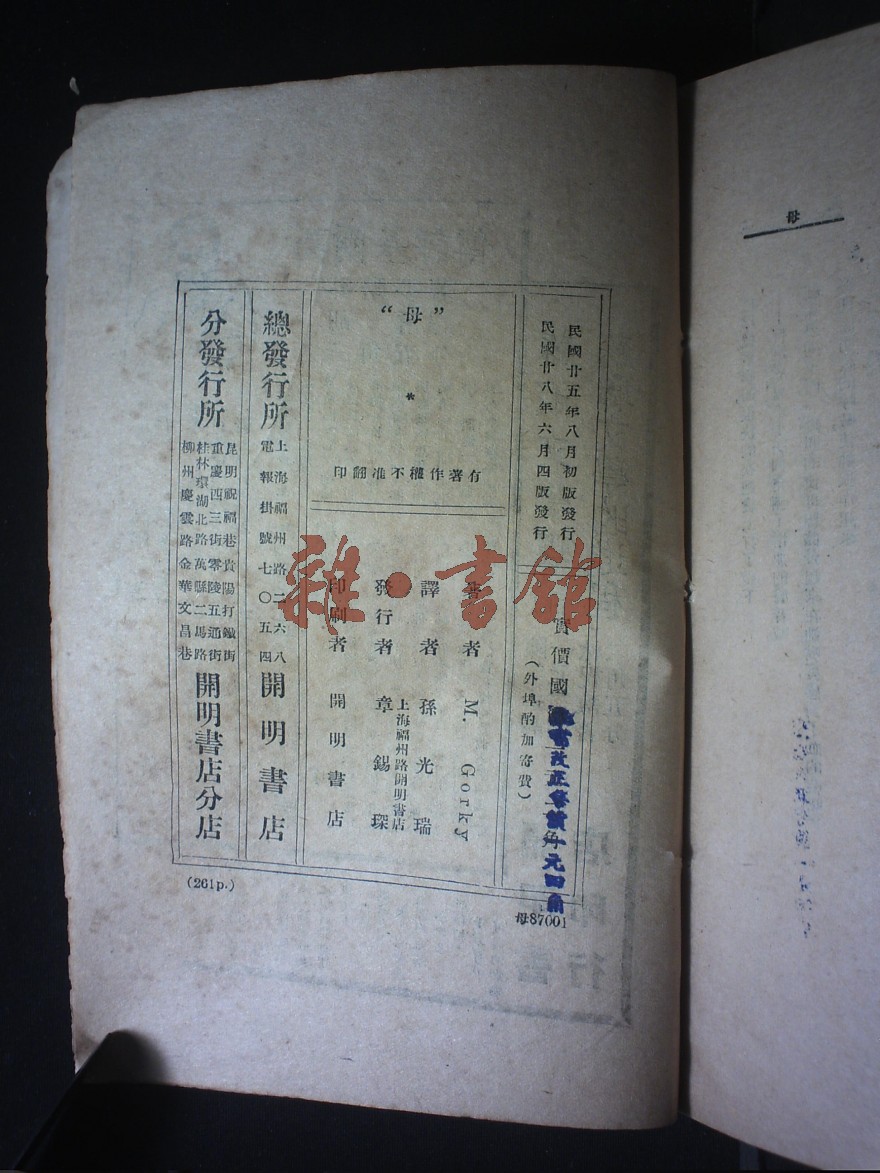 母
民國廿五年八月初版發行
民國廿八年六月四版發行
實價國
改正實價一元四角
(外埠酌加寄費)
“母”
*
有著作權不准翻印
著者 M. Gorky
譯者 孫光瑞
發行者 章錫琛
上海福州路開明書店
印刷者 開明書店
總發行所
上海福州路二六八
電報掛號七〇五四
開明書店
分發行所
昆明祝福巷貴陽打鐵街
重慶西三街零陵五通街
桂林環湖北路萬縣二馬路
柳州慶雲路金華文昌巷
開明書店分店
(261p.)
母87001
雜·書館